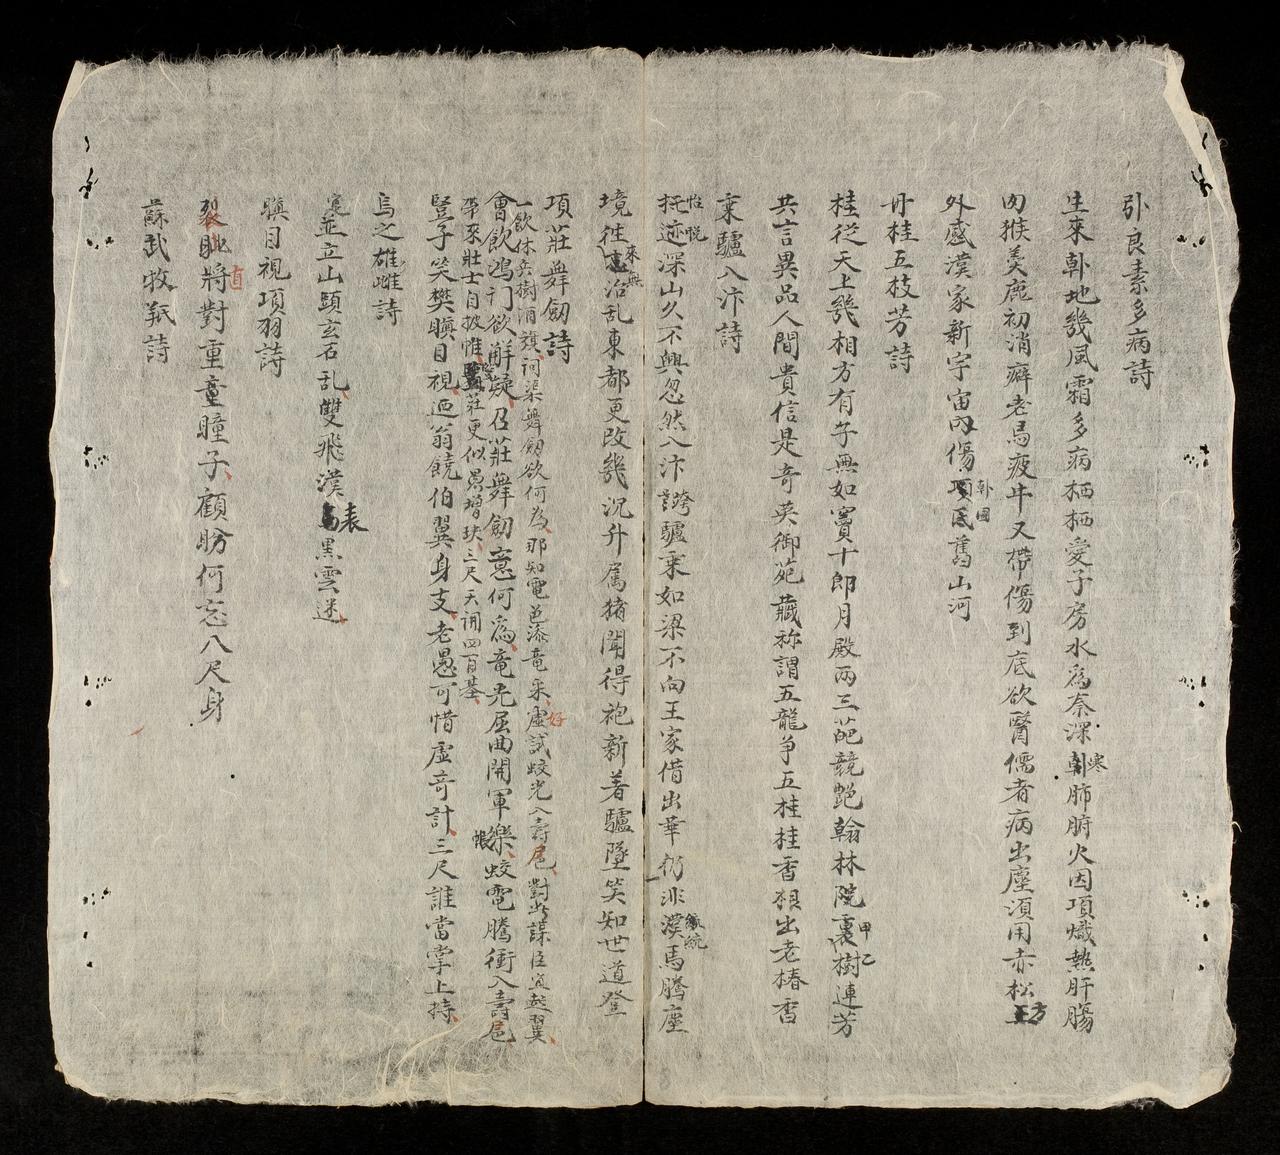 卧良素多病詩
生來韓地幾風霜多病栖栖愛子房水為奈深朝肺腑火因項熾熱肝腸
寒
肉猴羹鹿初消癖老馬疲牛又帶傷到底欲醫儒者病出塵須用赤松方
外感漢家新宇宙內傷項氏舊山河
韓国
丹桂五枝芳詩
桂從天上幾相方有子無如竇十郎月殿兩三葩競艷翰林院裏樹連芳
甲乙
共言異品人間貴信是奇英御苑藏祢謂五龍爭五桂桂香損出老椿香
乘驢入汴詩
托迹深山久不興忽然入汴跨驢乘如梁不向王家借出華仍非漢馬騰塵
怡悦
繼統
境徃治乱東都更改幾沉升属猪聞得袍新着驢墜笑知世道登
來無
項莊舞劔詩
一飲休兵樹酒旗祠渠舞劔欲何為那知電色添竜采虛試蛟光入壽巵對此謀臣宜越翼
好
會飲鴻门欲解疑乃莊舞劔意何為竜光屈曲開軍樂蛟電騰衝入壽巵
帳
帶來壯士自披帷莊更似愚增玦三尺天開四百基
豎子笑樊瞋目視迺翁饒伯翼身支老愚可惜虛奇計三尺誰當掌上持
烏之雄雌詩
寔並立山頭玄石乱雙飛漠表黑雲迷
瞋目視項羽詩
裂眦將對重童瞳子顧盼何忘八尺身
直
蘇武牧羝詩